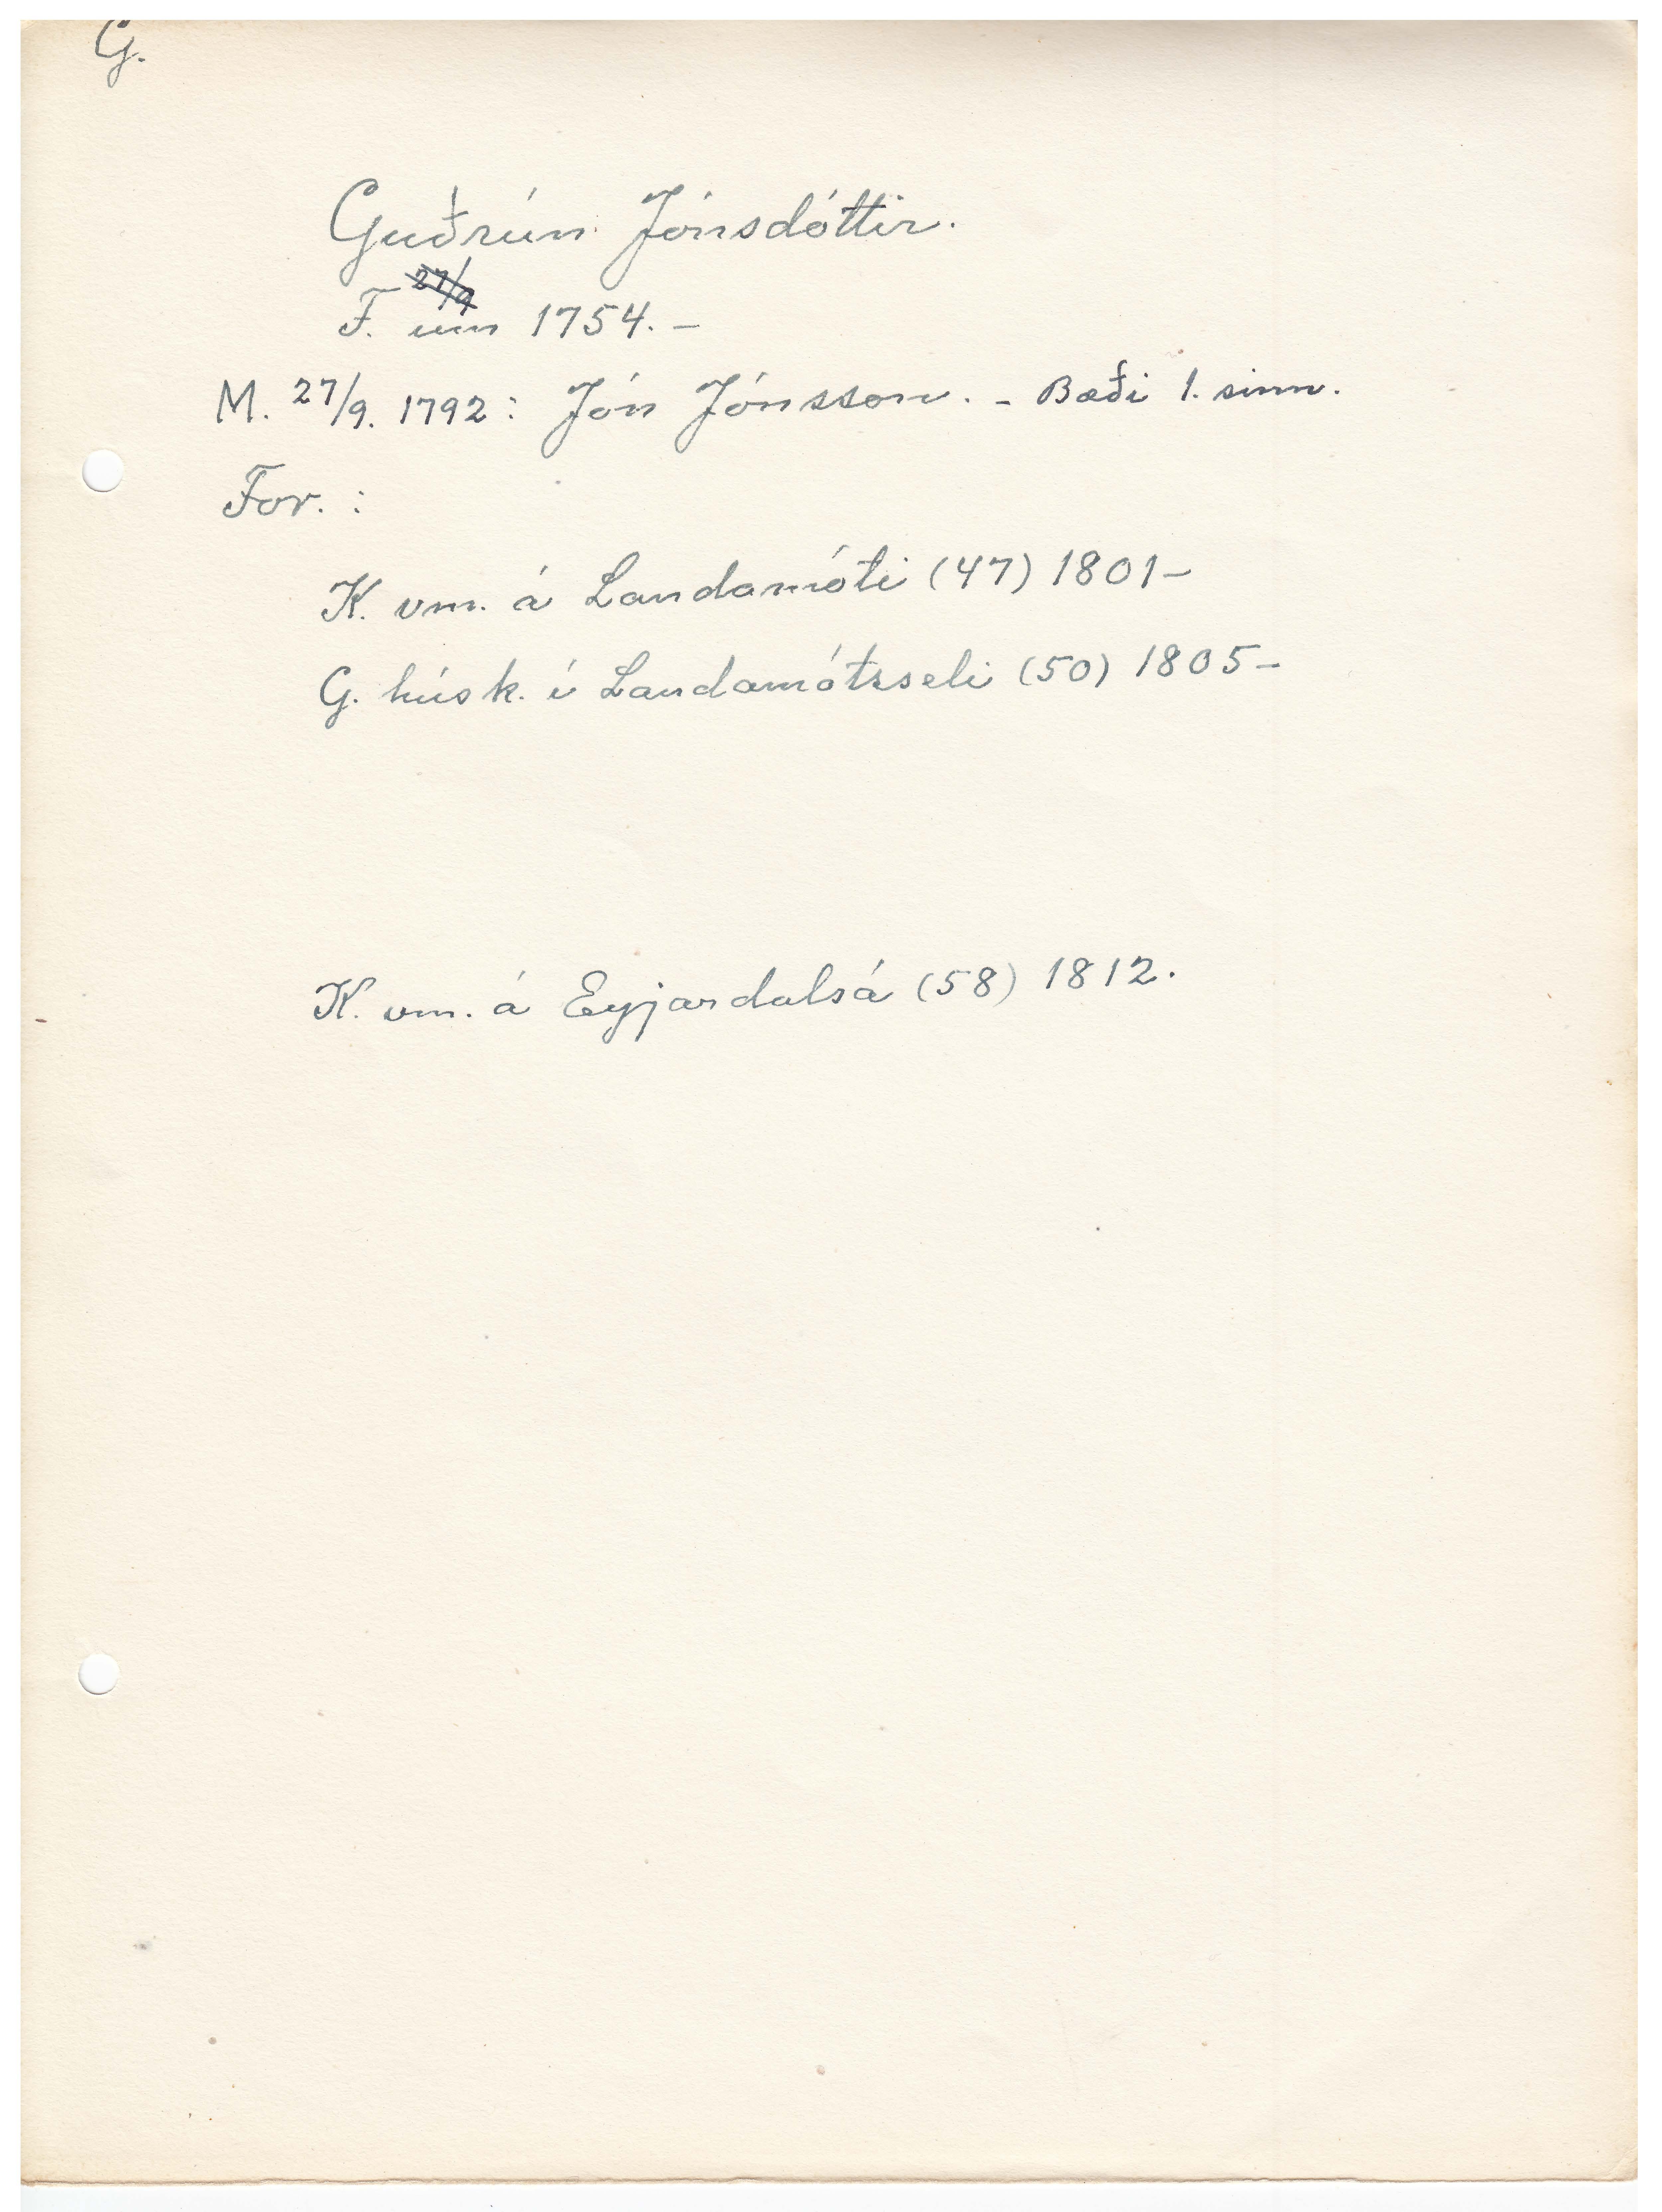 G.
Guðrún Jónsdóttir.
27/9
F. um 1754. –
M. 27/9. 1792: Jón Jónsson. – Bæði 1. sinn.
For. :
K. vm. á Landamóti (47) 1801–
G. húsk. í Landamótsseli (50) 1805–
K. vm. á Eyjardalsá (58) 1812.